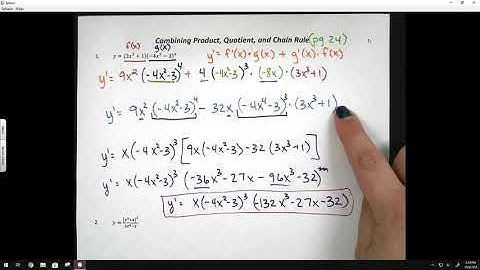 f(x) g(x)
Combining Product, Quotient, and Chain Rule (pg. 24)
1. y = (3x³ + 1)(-4x² - 3)⁴ y' = f'(x)·g(x) + g'(x)·f(x)
y' = 9x² (-4x²-3)⁴ + 4 (-4x²-3)³ · (-8x) · (3x³+1)
y' = 9x² (-4x²-3)⁴ - 32x (-4x⁴-3)³ · (3x³+1)
y' = x(-4x²-3)³ [9x(-4x²-3) - 32(3x³+1)]
y' = x(-4x²-3)³ (-36x³ - 27x - 96x³ - 32)
y' = x(-4x²-3)³ (-132x³ - 27x - 32)
2.